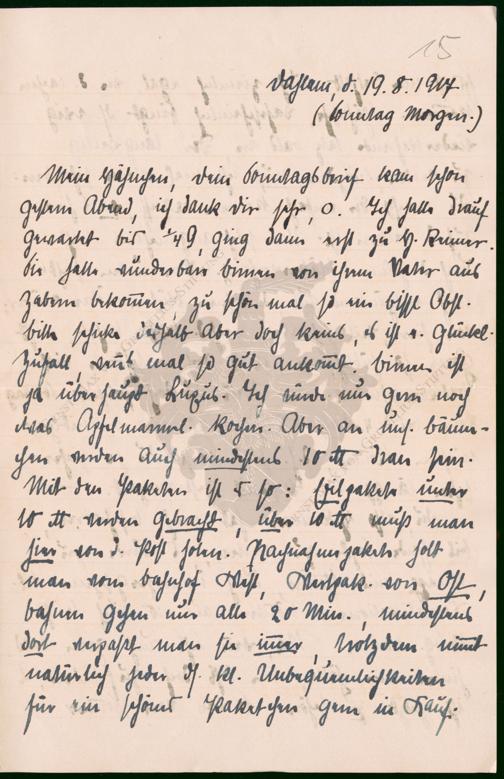 15
Dahlem, d. 19.8.1917
(Sonntag Morgen.)
Mein Hähnchen, dein Sonntagsbrief kam schon
gestern Abend, ich dank dir sehr, o. Ich hatte drauf
gewartet bis 1/4 9, ging dann erst zu H. Reimer.
die hatte wunderbare birnen von ihrem Vater aus
Zabern bekommen, zu schön mal so ein bissl Obst.
bitte schicke deshalb aber doch keins, es ist e. Glücks-
zufall, wenns mal so gut ankommt. birnen ist
ja überhaupt Luxus. Ich würde nur gern noch
etwas Apfelmarmel. kochen. Aber an uns. bäum-
chen werden auch mindestens 10 ℔ dran sein.
Mit den Paketen ist es so: Eilpakete unter
10 ℔ werden gebracht, über 10 ℔ muß man
hier von d. Post holen. Nachnahmpakete holt
man vom bahnhof West, Wertpak. von Ost,
bahnen gehen nur alle 20 Min., mindestens
dort verpaßt man sie immer, trotzdem nimmt
natürlich jeder d. kl. Unbequemlichkeiten
für ein schönes Paketchen gern in Kauf.